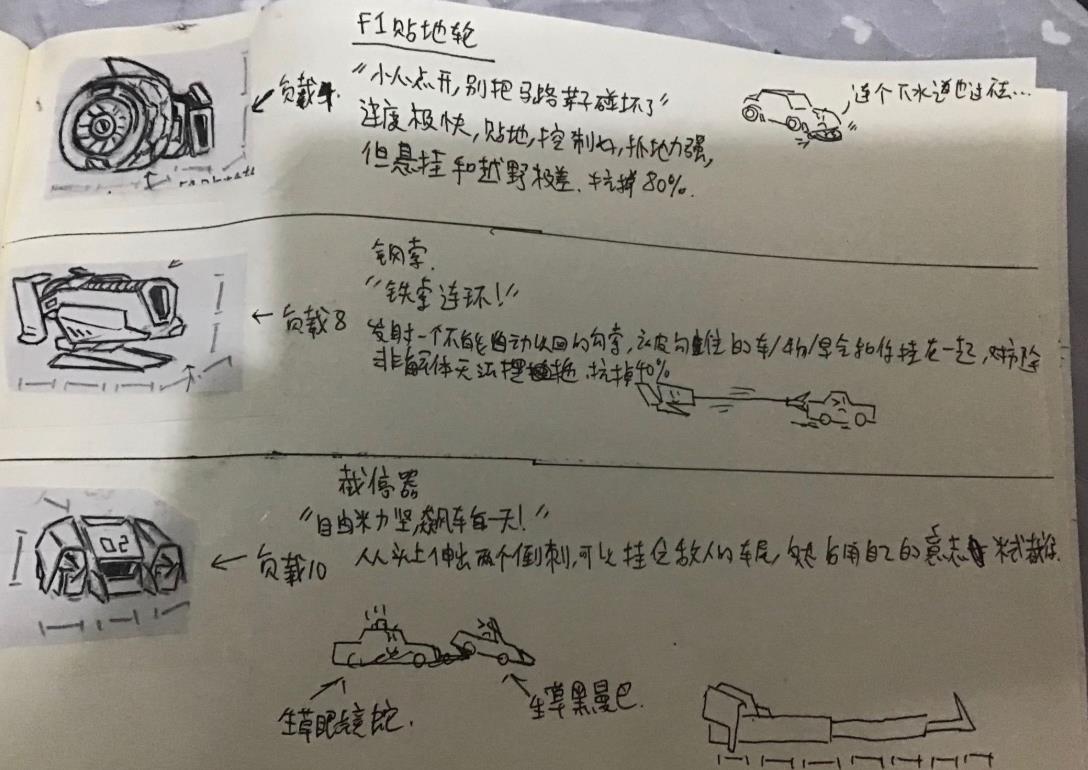 F1贴地轮
负载4.
"小心点开,别把马路牙子碰坏了"
速度极快,贴地,控制好,抓地力强,
但悬挂和越野极差.抗掉80%.
这个下水道也过不去…
钢索.
"铁索连环!"
负载8
发射一个不能自动收回的勾索,被勾住的车/物/会和你挂在一起,
非解体无法摆脱.抗掉40%
截停器
"自由米力坚,飙车每一天!"
负载10
从头上伸出两个倒刺,可以挂住敌人的车尾,用自己的意志来截停.
生草眼镜蛇.
生草黑曼巴.
02